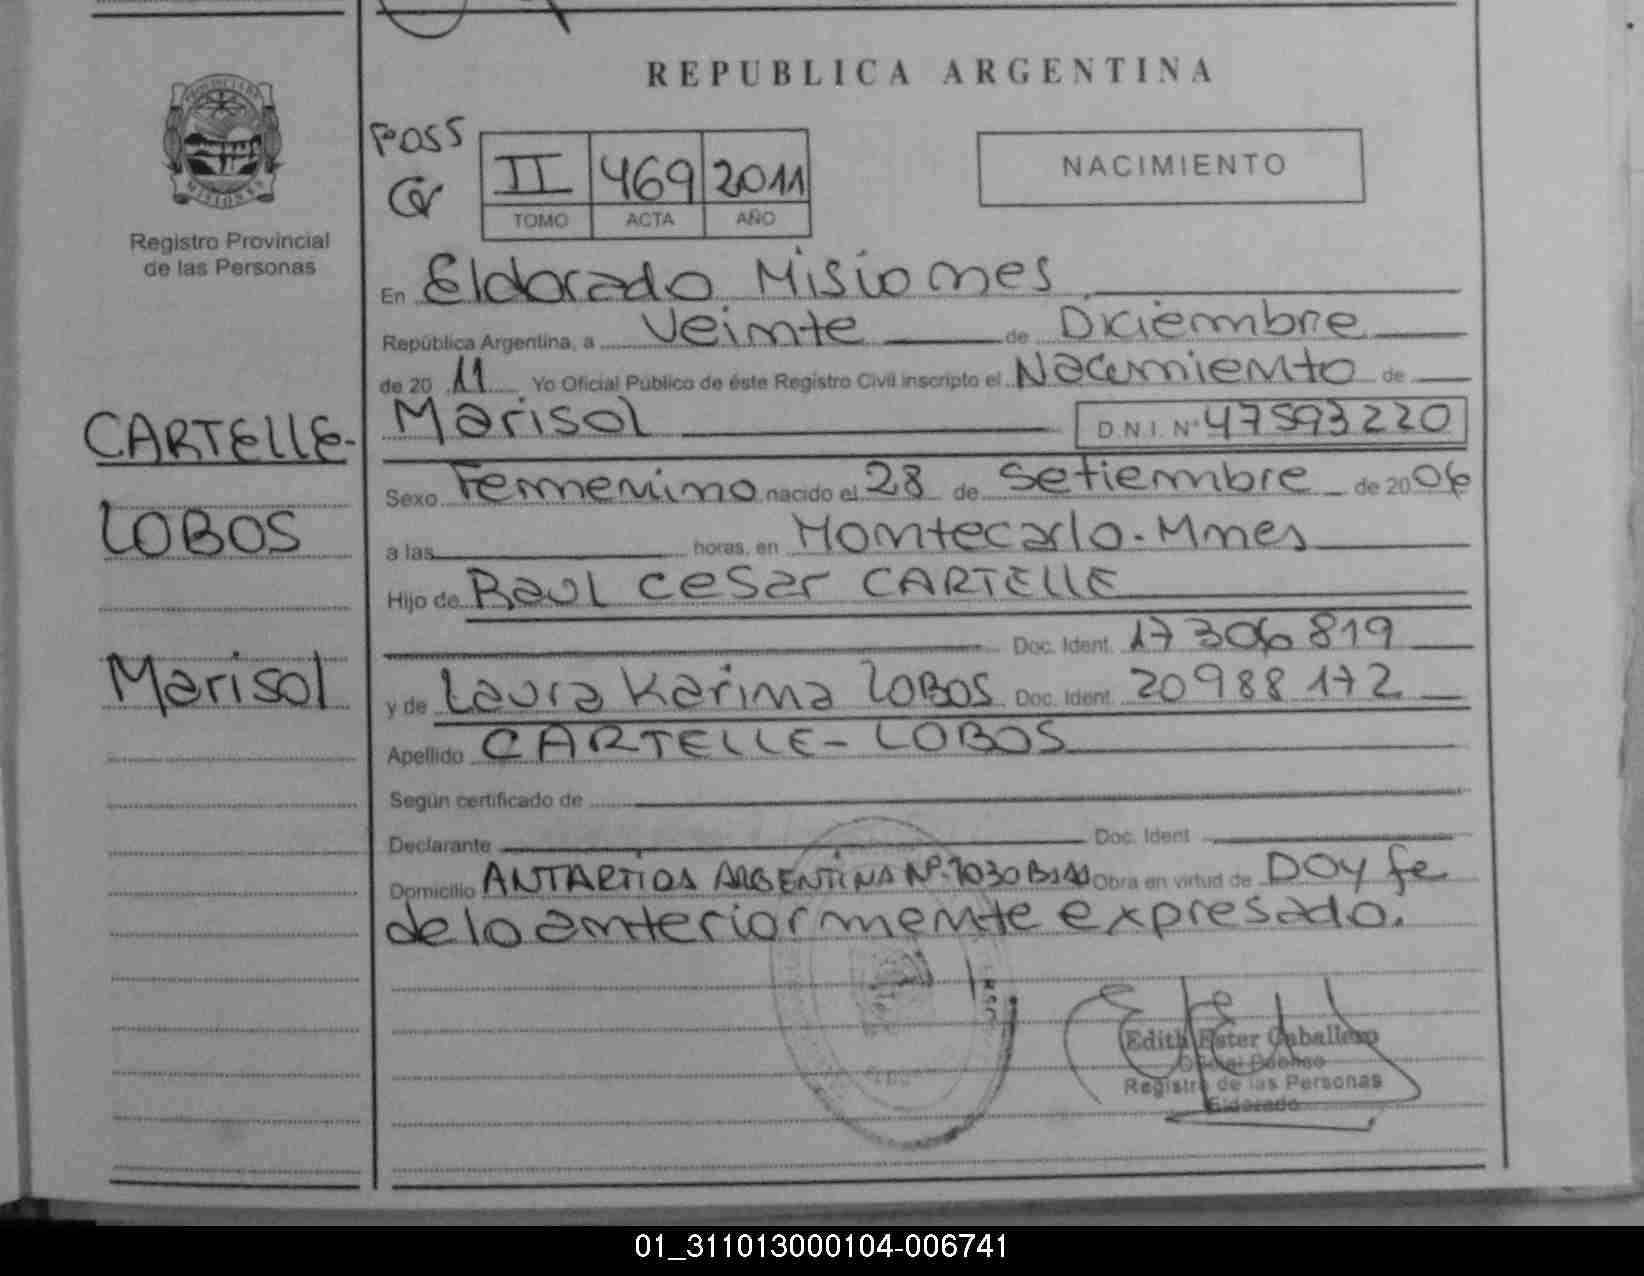 REPUBLICA ARGENTINA
PROVINCIA DE
MISIONES
Registro Provincial
de las Personas
II 469 2011
TOMO ACTA AÑO
NACIMIENTO
En Eldorado Misiones
República Argentina, a Veinte de Diciembre
de 20 11 Yo Oficial Público de éste Registro Civil inscripto el Nacimiento de
Marisol D.N.I. Nº 47593220
CARTELLE-
LOBOS
Marisol
Sexo Femenino nacido el 28 de Setiembre de 2006
a las horas, en Montecarlo. Mnes
Hijo de Raul Cesar CARTELLE
Doc. Ident. 17306819
y de Laura Karina LOBOS Doc. Ident. 20988172
Apellido CARTELLE-LOBOS
Según certificado de
Declarante Doc. Ident
Domicilio ANTARTIDA ARGENTINA Nº 1030 Obra en virtud de DOY fe
de lo anteriormente expresado.
Edith Ester Caballero
Oficial Público
Registro de las Personas
Eldorado
01_311013000104-006741